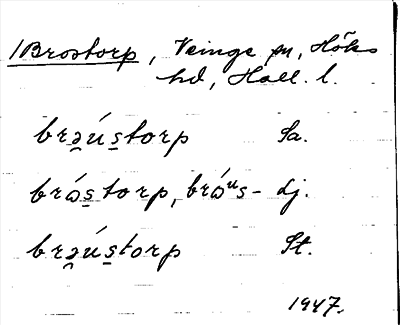 /Brostorp, Veinge sn, Höks
hd, Hall. l.
brə̯ús̱torp Sa.
brós̱torp, bróᵘs- Lj.
brə̯ús̱torp St.
1947.